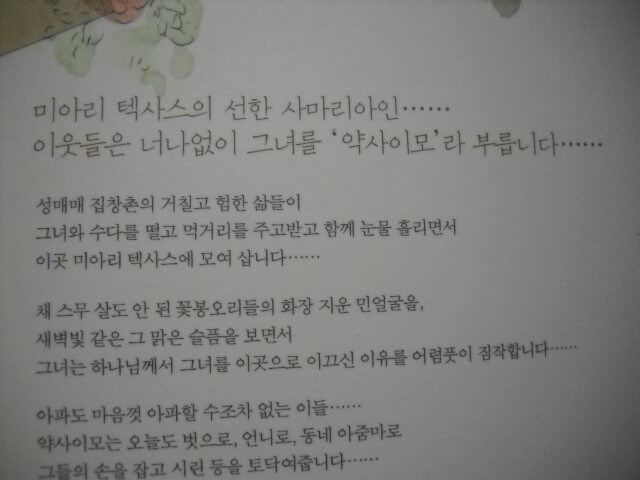 미아리 텍사스의 선한 사마리아인……
이웃들은 너나없이 그녀를 ‘약사이모’라 부릅니다……
성매매 집창촌의 거칠고 험한 삶들이
그녀와 수다를 떨고 먹거리를 주고받고 함께 눈물 흘리면서
이곳 미아리 텍사스에 모여 삽니다……
채 스무 살도 안 된 꽃봉오리들의 화장 지운 민얼굴을,
새벽빛 같은 그 맑은 슬픔을 보면서
그녀는 하나님께서 그녀를 이곳으로 이끄신 이유를 어렴풋이 짐작합니다……
아파도 마음껏 아파할 수조차 없는 이들……
약사이모는 오늘도 벗으로, 언니로, 동네 아줌마로
그들의 손을 잡고 시린 등을 토닥여줍니다……